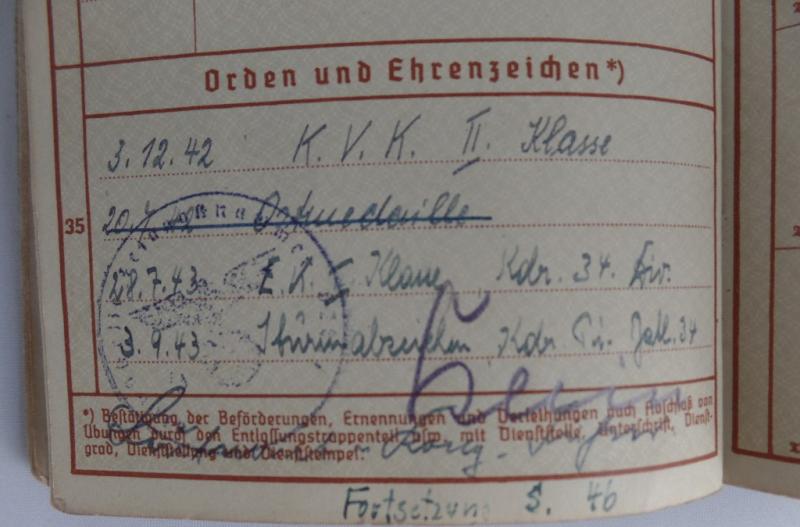 Orden und Ehrenzeichen*)
3.12.42 K. V. K. II. Klasse
35
Ostmedaille
28.7.43 E. K. I. Klasse, Kdr. 34. Div.
3.9.43 Sturmabzeichen Kdr. Pi. Batl. 34
*) Bestätigung der Beförderungen, Ernennungen und Verleihungen nach Abschluß von
Übungen durch den Entlassungstruppenteil usw. mit Dienststelle, Unterschrift, Dienst-
grad, Dienststellung und Dienststempel.
Fortsetzung S. 46